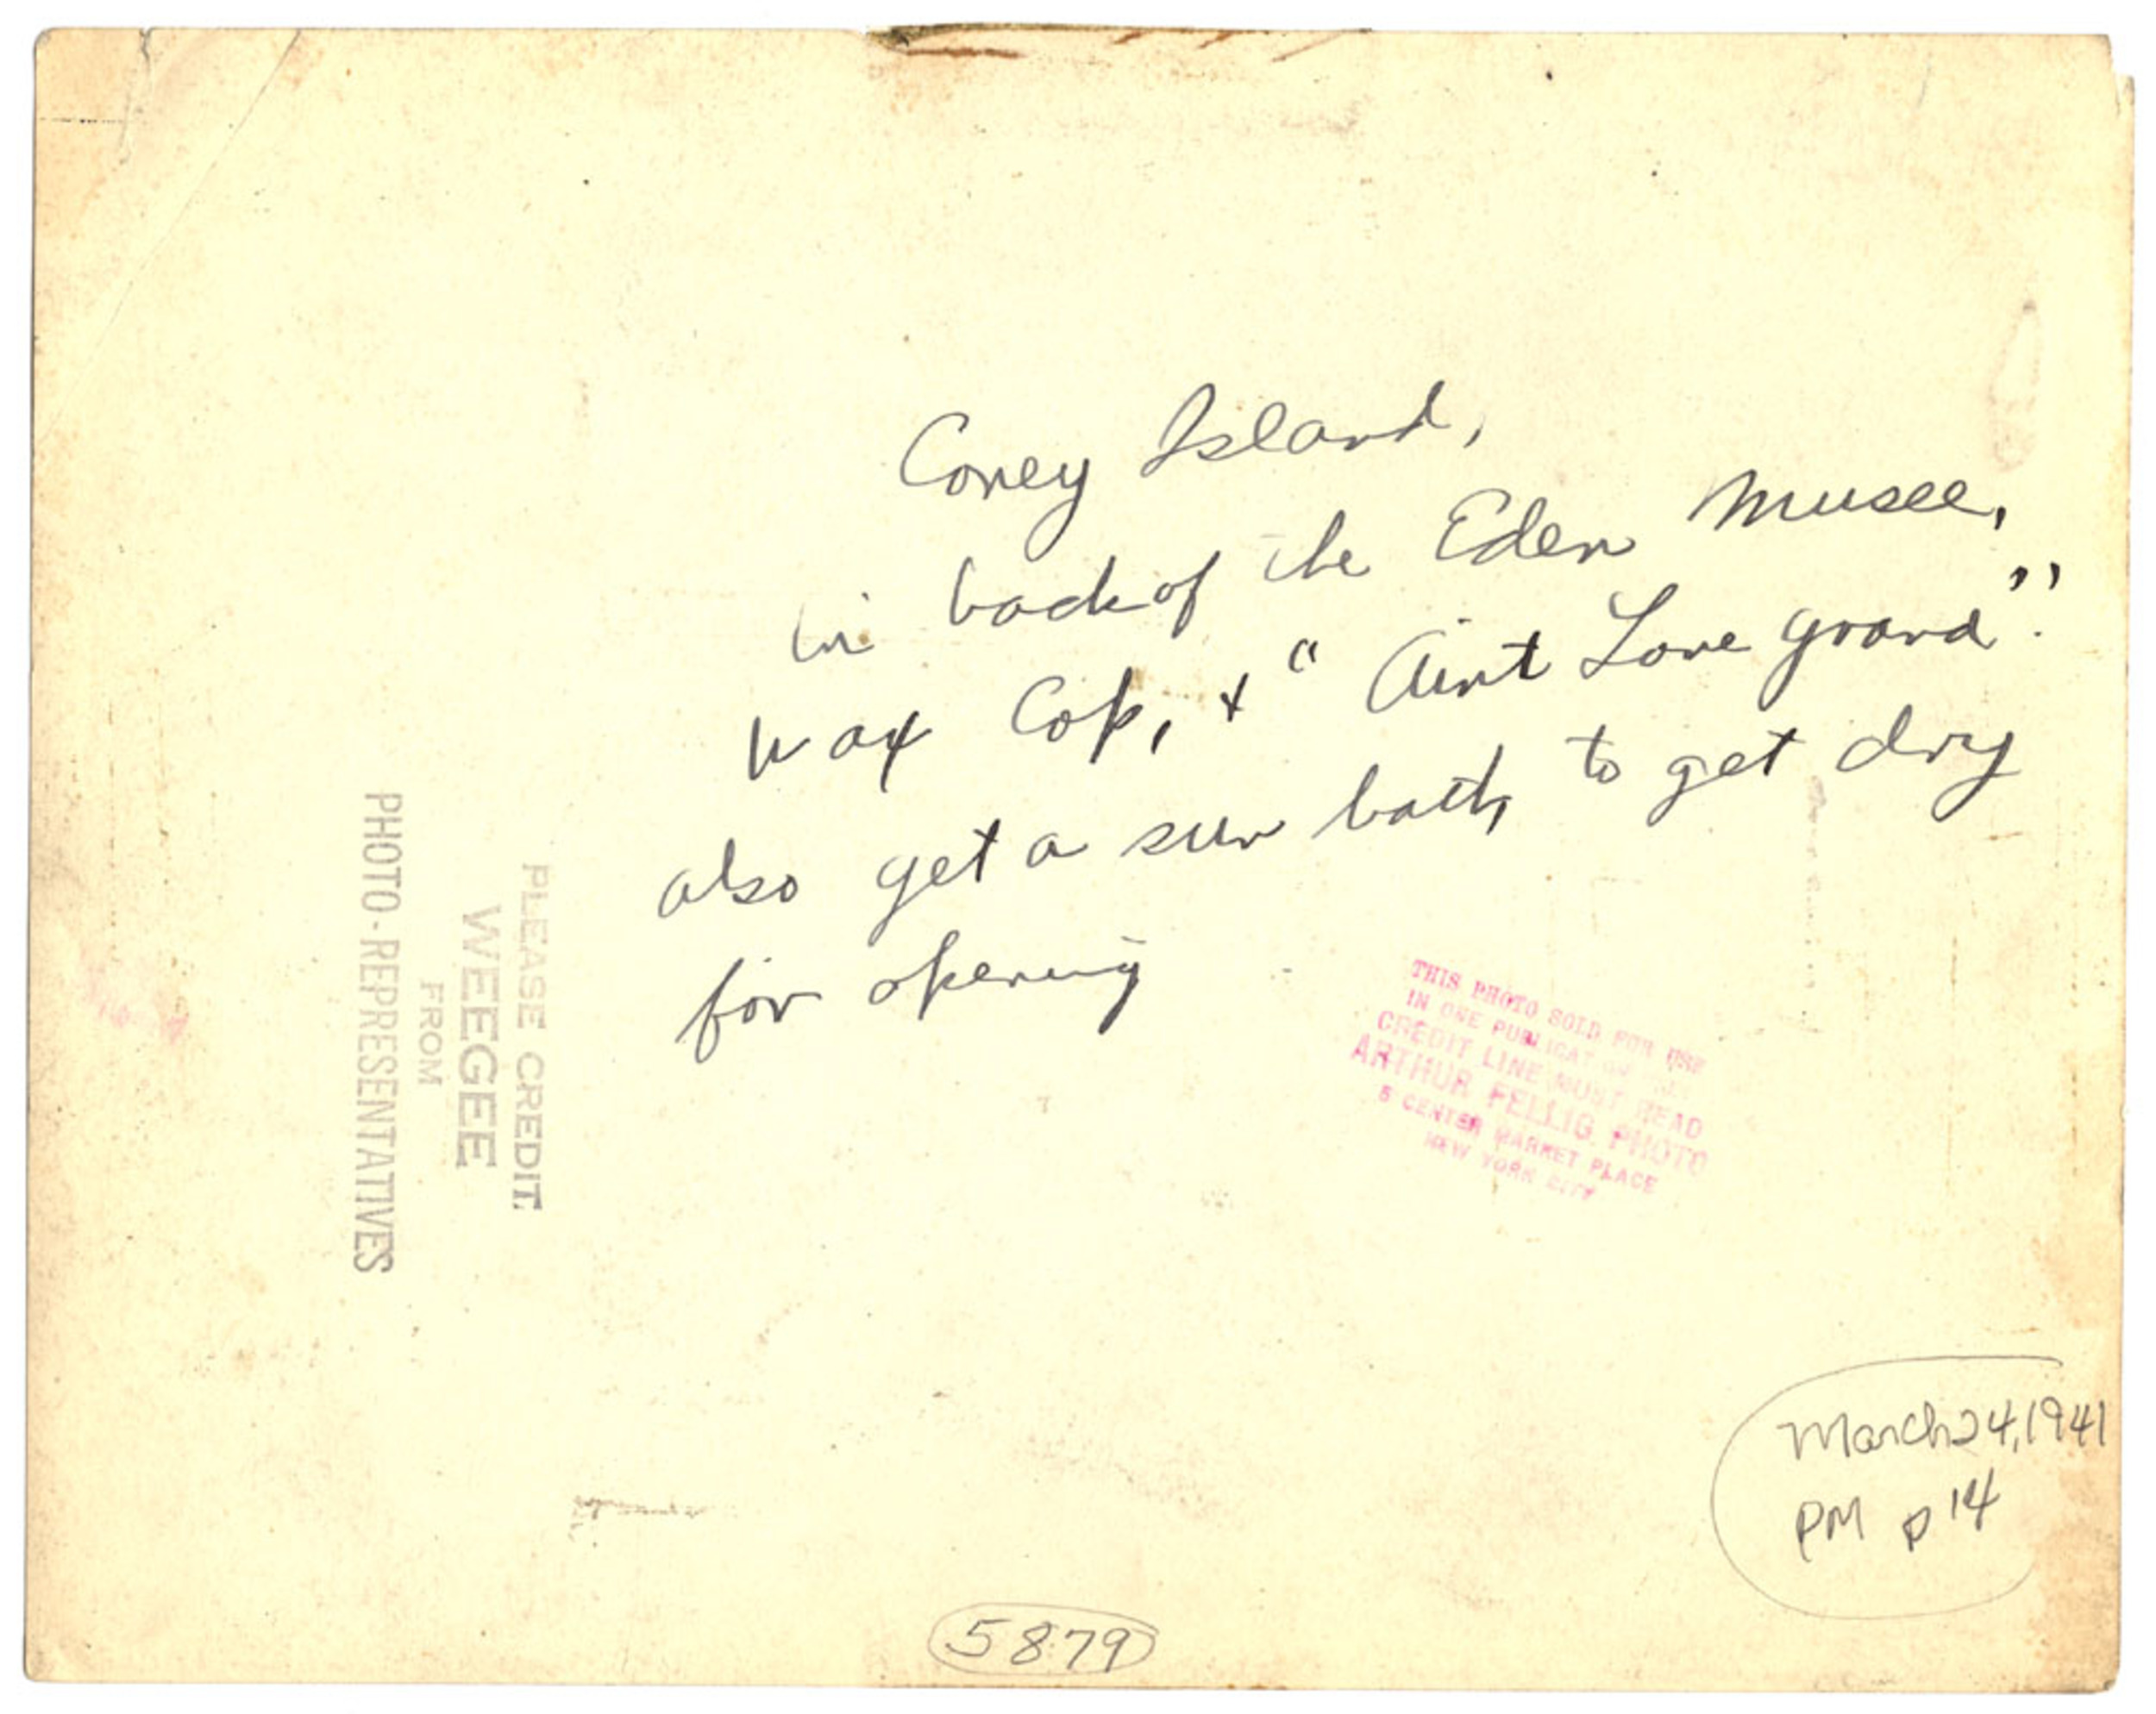 Coney Island,
in back of the Eden Musee,
Wax Cop, + "Aint Love grand".
also get a sun bath, to get dry
for opening
PLEASE CREDIT
WEEGEE
FROM
PHOTO-REPRESENTATIVES
THIS PHOTO SOLD FOR USE
IN ONE PUBLICATION
CREDIT LINE MUST READ
ARTHUR FELLIG PHOTO
5 CENTER MARKET PLACE
NEW YORK CITY
March 24, 1941
PM p 14
5879